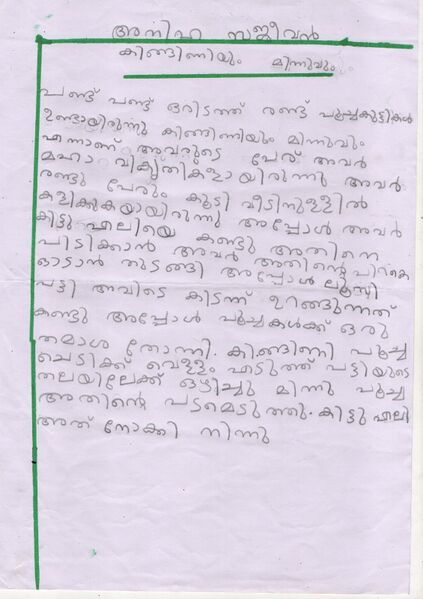 അനിഹ സജീവൻ
കിങ്ങിണിയും മിന്നുവും
പണ്ട് പണ്ട് ഒരിടത്ത് രണ്ട് പൂച്ചകുട്ടികൾ
ഉണ്ടായിരുന്നു കിങ്ങിണിയും മിന്നുവും
എന്നാണ് അവരുടെ പേര് അവർ
മഹാ വികൃതികളായിരുന്നു അവർ
രണ്ടു പേരും കൂടി വീടിനുള്ളിൽ
കളിക്കുകയായിരുന്നു അപ്പോൾ അവർ
കിട്ടു എലിയെ കണ്ടു അതിനെ
പിടിക്കാൻ അവർ അതിന്റെ പിറകെ
ഓടാൻ തുടങ്ങി അപ്പോൾ ലൂസി
പട്ടി അവിടെ കിടന്ന് ഉറങ്ങുന്നത്
കണ്ടു അപ്പോൾ പൂച്ചകൾക്ക് ഒരു
തമാശ തോന്നി. കിങ്ങിണി പൂച്ച
ചെടിക്ക് വെള്ളം എടുത്ത് പട്ടിയുടെ
തലയിലേക്ക് ഒഴിച്ചു മിന്നു പൂച്ച
അതിന്റെ പടമെടുത്തു. കിട്ടു എലി
അത് നോക്കി നിന്നു